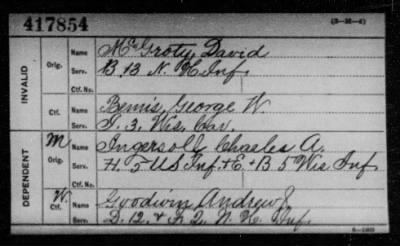 417854
(3-26-4)
INVALID
Orig.
Name McGroty, David
Serv. B. 13 N. H. Inf.
Ctf. No.
Ctf.
Name Bemis, George W.
Serv. D. 3. Wis. Cav.
DEPENDENT
M.
Orig.
Name Ingersoll, Charles A.
Serv. H. 5 US Inf. + E. + B 5 Wis Inf
Ctf. No.
W.
Ctf.
Name Goodwin Andrew J.
Serv. D. 12. + A 2, N. H. Inf.